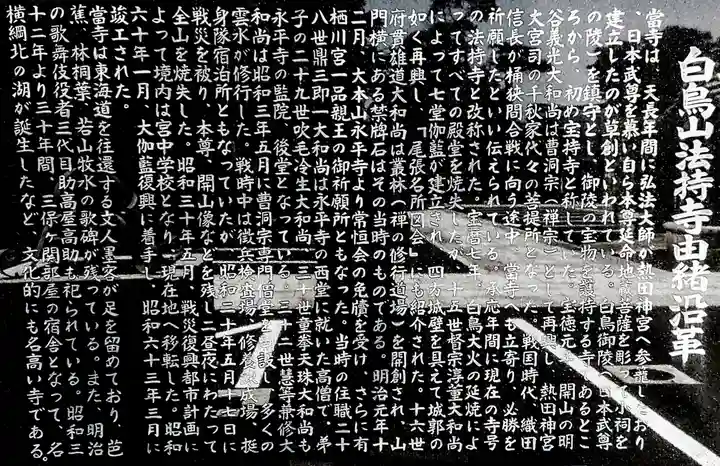 白鳥山法持寺由緒沿革
當寺は、天長年間に弘法大師が熱田神宮へ参籠したおり
、日本武尊を慕い自ら本尊延命地蔵菩薩を彫って小祠を
建立したのが草創といわれている。白鳥御陵（日本武尊
の陵）を鎮守とし、御陵の宝物を護持する寺であるとこ
ろから、初め宝持寺と称していた。宝徳元年、開山の明
谷義光大和尚は曹洞宗（禅宗）として再興し、熱田神宮
大宮司の千秋家代々の菩提所となった。戦国時代、織田
信長が桶狭間合戦に向う途中、當寺へも立寄り、必勝を
祈願したという伝えられている。承応年間に現在の寺号
の法持寺と改称された。宝暦七年、白鳥大火の延焼によ
ってすべての殿堂を焼失したが、十五世督宗淳董大和尚
によって七堂伽藍が建立され、四方城壁を具えて城郭の
如く再興し、『尾張名所図会』にも紹介された。十六世
府貫雄道大和尚は叢林（禅の修行道場）を開創され、山
門横にある禁牌石はその当時のものである。明治元年十
二月、大本山永平寺より常恒会の免牘を受け、さらに有
栖川宮一品親王の御祈願所ともなった。当時の住職二十
八世鼎三即一大和尚は永平寺の西堂に就いた高僧で、弟
子の二十九世吹毛冷生大和尚、三十世童拳天珠大和尚も
永平寺の監院、後堂となっている。三十二世慧等兼修大
和尚は昭和三年五月に曹洞宗専門僧堂を設し、多くの
雲水が修行した。戦時中は徴兵検査場、修養成場、挺
身隊宿泊所ともなっていたが、昭和二十年五月十七日に
戦災を被り、本尊、開山像などを残し一昼夜にわたって
全山を焼失した。昭和三十年五月、戦災復興都市計画に
よって境内は宮中学校となり、現在地へ移転した。昭和
六十年一月、大伽藍復興に着手し、昭和六十三年三月に
竣工された。
當寺は東海道を往還する文人墨客が足を留めており、芭
蕉、林桐葉、若山牧水の歌碑が残っている。また、明治
の歌舞伎役者三代目助高屋高助も祀られている。昭和三
十二年より三十年間、三保ヶ関部屋の宿舎となって、名
横綱北の湖が誕生したなど、文化的にも名高い寺である。